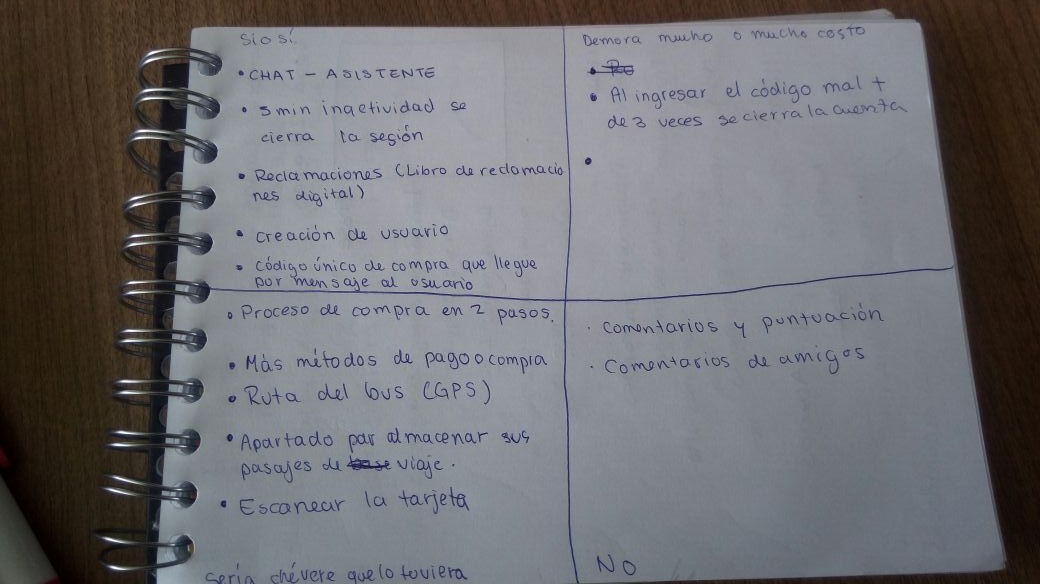 Sio sí.
• CHAT - ASISTENTE
• 5 min inactividad se
cierra la sesión
• Reclamaciones (Libro de reclamacio
nes digital)
• creación de usuario
• código único de compra que llegue
por mensaje al usuario
Demora mucho o mucho costo
• Al ingresar el código mal +
de 3 veces se cierra la cuenta
•
• Proceso de compra en 2 pasos.
• Más métodos de pago o compra
• Ruta del bus (GPS)
• Apartado par almacenar sus
pasajes de viaje.
• Escanear la tarjeta
Sería chévere que lo tuviera
· comentarios y puntuación
· Comentarios de amigos
NO